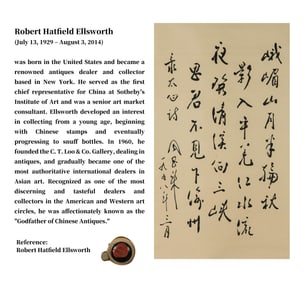 Robert Hatfield Ellsworth
(July 13, 1929 – August 3, 2014)
was born in the United States and became a
renowned antiques dealer and collector
based in New York. He served as the first
chief representative for China at Sotheby's
Institute of Art and was a senior art market
consultant. Ellsworth developed an interest
in collecting from a young age, beginning
with Chinese stamps and eventually
progressing to snuff bottles. In 1960, he
founded the C. T. Loo & Co. Gallery, dealing in
antiques, and gradually became one of the
most authoritative international dealers in
Asian art. Recognized as one of the most
discerning and tasteful dealers and
collectors in the American and Western art
circles, he was affectionately known as the
"Godfather of Chinese Antiques."
Reference:
Robert Hatfield Ellsworth
峨嵋山月半輪秋
影入平羌江水流
夜發清溪向三峽
思君不見下渝州
录太白诗
年三月